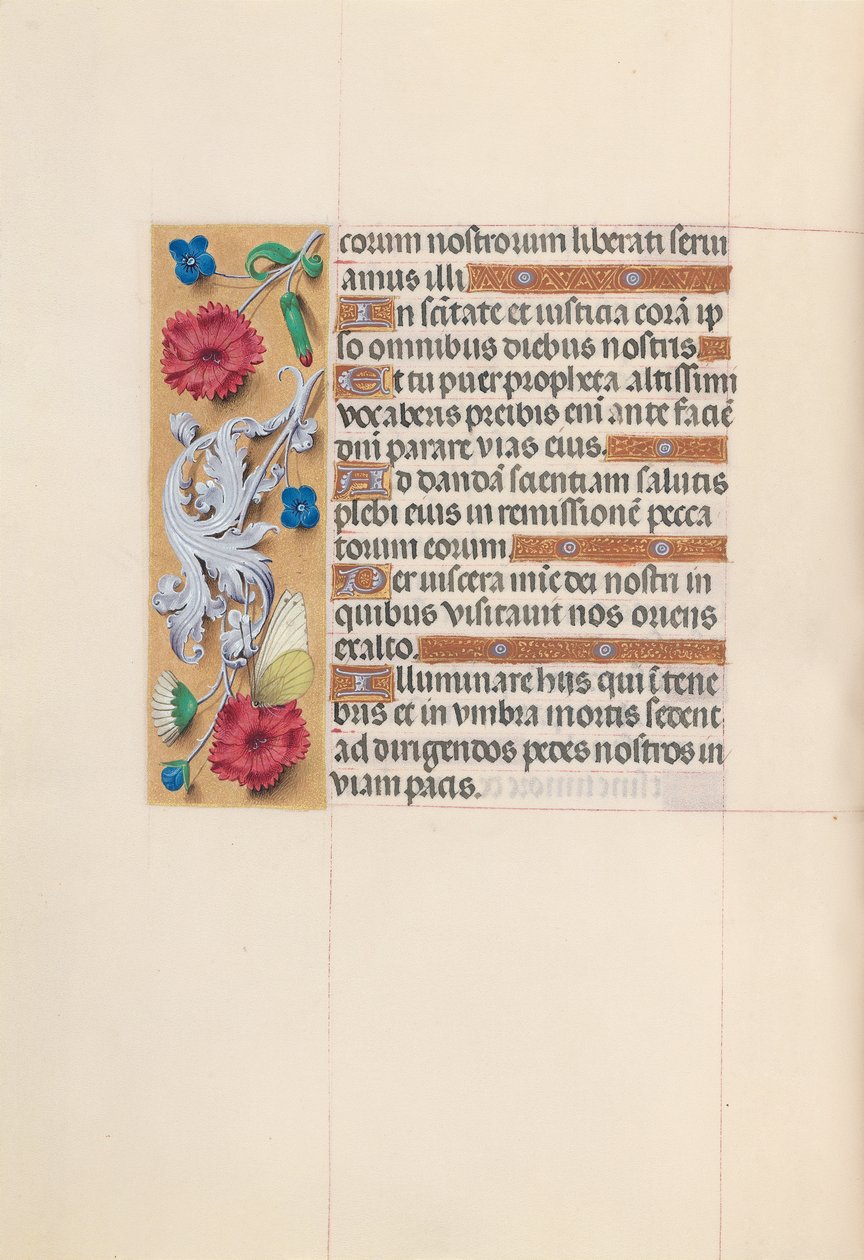 corum nostrorum liberati serui
amus illi
In scītate et iusticia corā ip
so omnibus diebus nostris.
Et tu puer propheta altissimi
vocaberis preibis eni ante faciē
dni parare vias eius.
Ad dandā scientiam salutis
plebi eius in remissionē pecca
torum eorum
Per uiscera mie dei nostri in
quibus visitauit nos oriens
exalto.
Illuminare hijs qui ī tene
bris et in vmbra mortis sedent
ad dirigendos pedes nostros in
viam pacis.